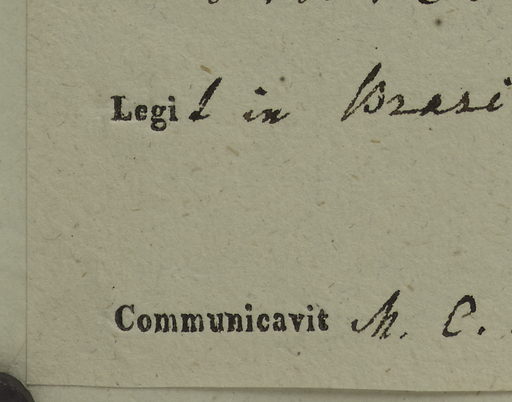 Legit in Brasi
Communicavit M. C.